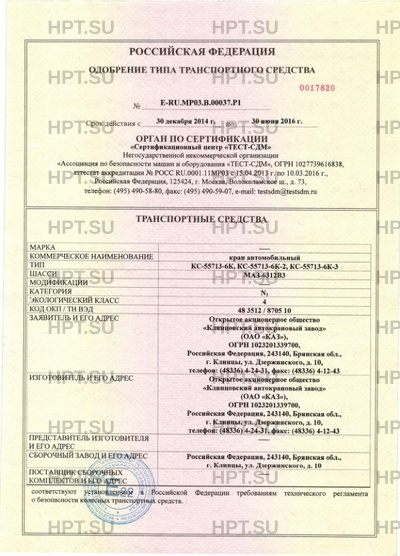 HPT.SU HPT.SU HPT.SU
РОССИЙСКАЯ ФЕДЕРАЦИЯ
ОДОБРЕНИЕ ТИПА ТРАНСПОРТНОГО СРЕДСТВА
0017820
№ E-RU.MP03.B.00037.P1
Срок действия с 30 декабря 2014 г. по 30 июня 2016 г.
ОРГАН ПО СЕРТИФИКАЦИИ
«Сертификационный центр «ТЕСТ-СДМ»
Негосударственной некоммерческой организации
«Ассоциация по безопасности машин и оборудования «ТЕСТ-СДМ», ОГРН 1027739616838,
аттестат аккредитации № РОСС RU.0001.11МР03 с 15.04.2013 г. по 10.03.2016 г.,
Российская Федерация, 125424, г. Москва, Волоколамское ш., д. 73,
телефон: (495) 490-58-80, факс: (495) 490-59-07, e-mail: testsdm@testsdm.ru
ТРАНСПОРТНЫЕ СРЕДСТВА
МАРКА -----
КОММЕРЧЕСКОЕ НАИМЕНОВАНИЕ кран автомобильный
ТИП КС-55713-6К, КС-55713-6К-2, КС-55713-6К-3
ШАССИ МАЗ-6312В3
МОДИФИКАЦИИ -----
КАТЕГОРИЯ N3
ЭКОЛОГИЧЕСКИЙ КЛАСС 4
КОД ОКП / ТН ВЭД 48 3512 / 8705 10
ЗАЯВИТЕЛЬ И ЕГО АДРЕС Открытое акционерное общество
«Клинцовский автокрановый завод»
(ОАО «КАЗ»),
ОГРН 1023201339700,
Российская Федерация, 243140, Брянская обл.,
г. Клинцы, ул. Дзержинского, д. 10,
телефон: (48336) 4-24-31, факс: (48336) 4-12-43
ИЗГОТОВИТЕЛЬ И ЕГО АДРЕС Открытое акционерное общество
«Клинцовский автокрановый завод»
(ОАО «КАЗ»),
ОГРН 1023201339700,
Российская Федерация, 243140, Брянская обл.,
г. Клинцы, ул. Дзержинского, д. 10,
телефон: (48336) 4-24-31, факс: (48336) 4-12-43
ПРЕДСТАВИТЕЛЬ ИЗГОТОВИТЕЛЯ -----
И ЕГО АДРЕС
СБОРОЧНЫЙ ЗАВОД И ЕГО АДРЕС Российская Федерация, 243140, Брянская обл.,
г. Клинцы, ул. Дзержинского, д. 10
ПОСТАВЩИК СБОРОЧНЫХ -----
КОМПЛЕКТОВ И ЕГО АДРЕС
соответствуют установленным в Российской Федерации требованиям технического регламента
о безопасности колесных транспортных средств.
HPT.SU HPT.SU HPT.SU